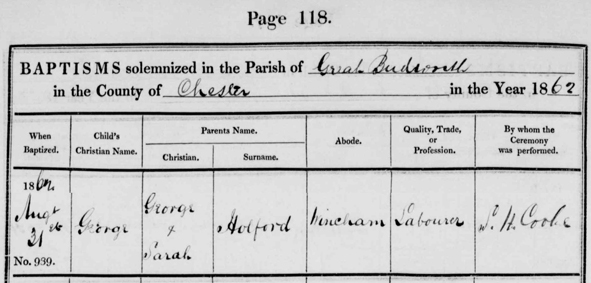 Page 118.
BAPTISMS solemnized in the Parish of Great Budworth
in the County of Chester in the Year 1862
When Baptized.
Child's Christian Name.
Parents Name.
Christian.
Surname.
Abode.
Quality, Trade, or Profession.
By whom the Ceremony was performed.
1862
Augt
31st
No. 939.
George
George
&
Sarah
Holford
Wincham
Labourer
H. Cooke